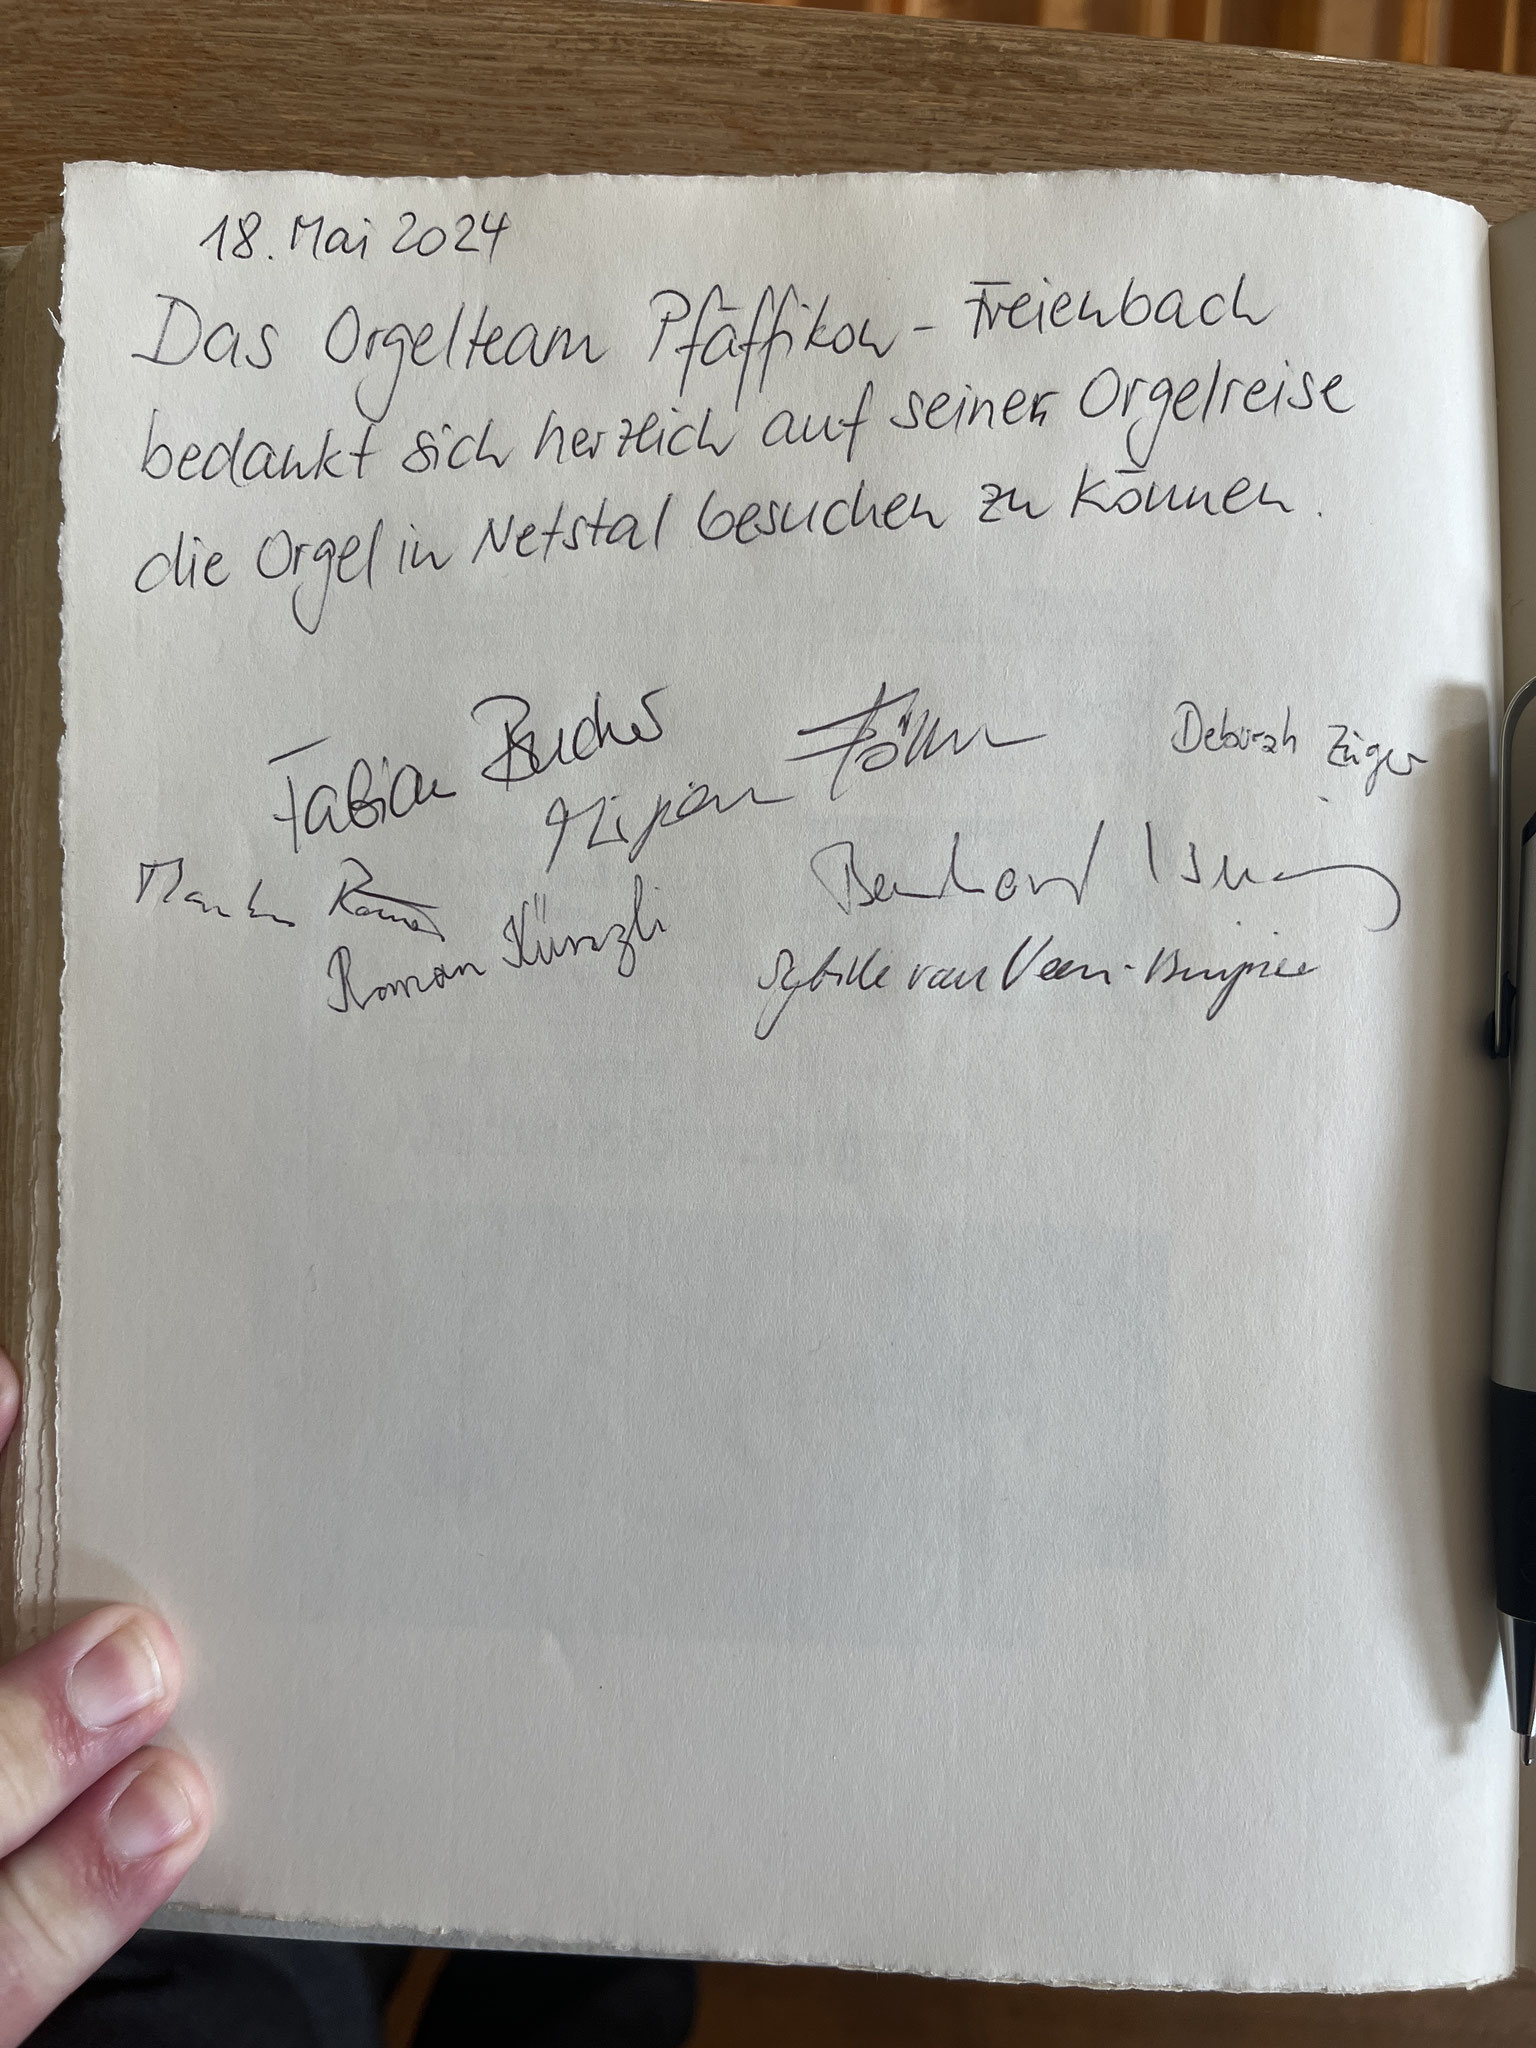 18. Mai 2024
Das Orgelteam Pfäffikon - Freienbach
bedankt sich herzlich auf seiner Orgelreise
die Orgel in Netstal besuchen zu können.
Fabian Bucher
Mirjam Föllmi
Deborah Züger
Roman Künzli
Bernhard
Sybille van Veen-